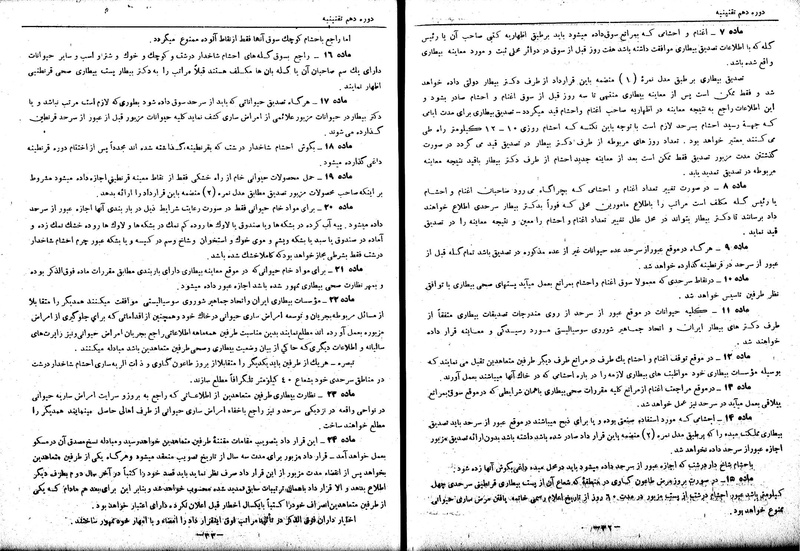 دوره دهم تقنینیه
ماده ۷ ــ اغنام و احشامی که بمراتع سوق داده میشود باید بر طبق اظهاریه کتبی صاحب آن یا رئیس
گله که با اطلاعات تصدیق بیطاری موافقت داشته باشد هفت روز قبل از سوق در دوائر محلی ثبت و مورد معاینه بیطاری
واقع شده باشد.
تصدیق بیطاری بر طبق مدل نمره (۱) منضمه باین قرارداد از طرف دکتر بیطار دولتی داده خواهد
شد و فقط ممکن است پس از معاینه بیطاری منتهی تا سه روز قبل از سوق اغنام و احشام صادر بشود و
این اطلاعات راجع به نتیجه معاینه در اظهاریه صاحب اغنام واحشام قید میگردد ــ تصدیق بیطاری برای مدت ایامی
که جهة رسید احشام بسرحد لازم است با توجه باین نکته که احشام روزی ۱۰ ــ ۱۲ کیلومتر راه طی
می کنند معتبر خواهد بود. تعداد روز های مربوطه از طرف دکتر بیطار در تصدیق قید می گردد در صورت
گذشتن مدت مزبور تصدیق فقط ممکن است بعد از معاینه جدید احشام از طرف دکتر بیطار باقید نتیجه معاینه
مربوطه در تصدیق تمدید یابد.
ماده ۸ ــ در صورت تغییر تعداد اغنام و احشامی که بچراگاه می رود صاحبان اغنام و احشام
یا رئیس گله مکلف است مراتب را باطلاع مامورین محلی که فوراً بدکتر بیطار سرحدی اطلاع خواهند
داد برسانند تا دکتر بیطار بتواند در محل علل تغییر تعداد اغنام و احشام را معین و نتیجه معاینه را در تصدیق
قید نماید.
ماده ۹ ــ هر گاه در موقع عبور از سرحد عده حیوانات غیر از عده مذکوره در تصدیق باشد تمام گله قبل از
عبور از سرحد در قرنطینه گذارده خواهد شد.
ماده ۱۰ ــ در نقاط سرحدی که معمولا سوق اغنام و احشام بمراتع بعمل میآید پستهای صحی بیطاری با توافق
نظر طرفین تاسیس خواهد شد.
ماده ۱۱ ــ کلیه حیوانات در موقع عبور از سرحد از روی مندرجات تصدیقات بیطاری متفقاً از
طرف دکتر های بیطار ایران و اتحاد جماهیر شوروی سوسیالیستی مورد رسیدگی و معاینه قرار داده
خواهند شد.
ماده ۱۲ ــ در موقع توقف اغنام و احشام یك طرف در مراتع طرف دیگر طرفین متعاهدین تقبل می نمایند که
بوسیله مؤسسات بیطاری خود مواظبت های بیطاری لازمه را در باره احشامی که در خاك آنها میباشند بعمل آورند.
ماده ۱۳ ــ در موقع مراجعت اغنام از مراتع کلیه مقررات صحی بیطاری باهمان شرایطی که در موقع سوق بمراتع
ییلاقی بعمل میآید در سرحد نیز عمل خواهد شد.
ماده ۱۴ ــ احشامی که مورد استفاده صنعتی بوده و یا برای ذبح میباشند در موقع عبور از سرحد باید تصدیق
بیطاری مملکت مبده را که بر طبق مدل نمره (۲) منضمه باین قرار داد صادر شده باشد داشته باشد بدون ارائه تصدیق مزبور
اجازه عبور از سرحد داده نخواهد شد.
باحشام شاخ دار درشت که اجازه عبور از سرحد داده میشود باید در محل مبده داغی بگوش آنها زده شود.
ماده ۱۵ ــ در صورت بروز مرض طاعون گاوی در منطقه که شعاع آن از پست بیطاری قرنطینی سرحدی چهل
کیلومتر باشد عبور احشام درشت از پست مزبور در مدت ۶۰ روز از تاریخ اعلام رسمی خاتمه یافتن مرض ساری حیوانی
ممنوع خواهد بود.
دوره دهم تقنینیه
اما راجع باحشام کوچك سوق آنها فقط از نقاط آلوده ممنوع میگردد.
ماده ۱۶ ــ راجع بسوق گله‌های احشام شاخدار درشت و کوچك و خوك و شتر و اسب و سایر حیوانات
دارای یك سم صاحبان آن یا گله بان ها مکلف هستند قبلا مراتب را به دکتر بیطار پست بیطاری صحی قرنطینی
اظهار نمایند
ماده ۱۷ ــ هر گاه تصدیق حیواناتی که باید از سرحد سوق داده شود بطوری که لازم است مرتب نباشد و یا
دکتر بیطار در حیوانات مزبور علائمی از امراض ساری کشف نماید کلیه حیوانات مزبور قبل از عبور از سرحد در قرنطین
گذارده می شوند.
ماده ۱۸ ــ بگوش احشام شاخدار درشت که بقرنطینه گذاشته شده اند مجدداً پس از اختتام دوره قرنطینه
داغی گذارده میشود.
ماده ۱۹ ــ حمل محصولات حیوانی خام از راه خشکی فقط از نقاط معینه قرنطینی اجازه داده میشود مشروط
بر اینکه صاحب محصولات مزبور تصدیق مطابق مدل نمره (۲) منضمه باین قرارداد را ارائه بدهد.
ماده ۲۰ ــ برای مواد خام حیوانی فقط در صورت رعایت شرایط ذیل در بار بندی آنها اجازه عبور از سرحد
داده میشود. پیه آب کرده در بشکه ها و یا صندوق یا لاوك ها روده کم نمك در بشکه ها و لاوك ها روده خشك نمك زده و
آماده در صندوق یا سبد یا بشکه و پشم و موی خوك و استخوان و شاخ وسم در کیسه و یا بشکه عبور جرم احشام شاخدار
درشت فقط بشرطی مجاز خواهد بود که کاملا خشك شده باشد.
ماده ۲۱ ــ برای مواد خام حیوانی که در موقع معاینه بیطاری دارای باربندی مطابق مقررات ماده فوق الذکر بوده
و بمهر نظارت صحی بیطاری ممهور شده باشد اجازه عبور داده میشود.
ماده ۲۲ ــ مؤسسات بیطاری ایران و اتحاد جماهیر شوروی سوسیالیستی موافقت میکنند همدیگر را متقابلا
از مسائل مربوطه بجریان و توسعه امراض ساری حیوانی در خاك خود و همچنین از اقداماتی که برای جلوگیری از امراض
مزبوره بعمل آورده اند مطلع نمایند بدین مناسبت طرفین همه ماهه اطلاعاتی راجع بجریان امراض حیوانی و نیز راپرت‌های
سالیانه و اطلاعات دیگری که حاکی از بیان وضعیت بیطاری و صحی طرفین متعاهدین باشد مبادله میکنند.
تبصره ــ هر یك از طرفین باید یکدیگر را متقابلا از بروز طاعون گاوی و ذات الریه ساری احشام شاخدار درشت
در مناطق سرحدی خود بشعاع ۴۰ کیلومتر تلگرافاً مطلع سازند.
ماده ۲۳ ــ نظارت بیطاری طرفین متعاهدین از اطلاعاتی که راجع به بروز و سرایت امراض ساریه حیوانی
در نواحی واقعه در نزدیکی سرحد و نیز راجع باخفاء امراض ساری حیوانی از طرف اهالی حاصل مینمایند همدیگر را
مطلع خواهند ساخت.
ماده ۲۴ ــ این قرار داد بتصویب مقامات مقننه طرفین متعاهدین خواهد رسید و مبادله نسخ مصدق آن در مسکو
بعمل خواهد آمد ــ قرار داد مزبور برای مدت سه سال از تاریخ تصویب منعقد میشود و هر گاه یکی از طرفین متعاهدین
بخواهد پس از انقضاء مدت مزبور از این قرار داد صرف نظر نماید باید قصد خود را کتباً در آخر سال دوم بطرف دیگر
اطلاع بدهد و الا قرار داد باهمان ترتیبات سابق تمدید شده محسوب خواهد شد و بنابر این برای بعد هم مادام که یکی
از طرفین متعاهدین انصراف خود را کتباً با یکسال اخطار قبل اعلان نکرده دارای اعتبار خواهد بود.
اختیار داران فوق الذکر در تأئید مراتب فوق این قرار داد را امضاء و با امهار خود ممهور ساختند.